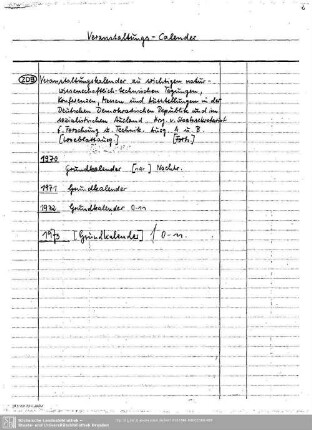 6
Veranstaltungs-Calender
209 Veranstaltungskalender zu wichtigen natur-
wissenschaftlich-technischen Tagungen,
Konferenzen, Messen und Ausstellungen in der
Deutschen Demokratischen Republik und im
sozialistischen Ausland. Hrg. v. Staatssekretariat
f. Forschung u. Technik. Ausg. A u. B.
[Loseblattausg] [Forts.]
1970
Grundkalender [nr.] Nachtr.
1971 Grundkalender
1972 Grundkalender 0-n
1973 [Grundkalender] / 0-n.